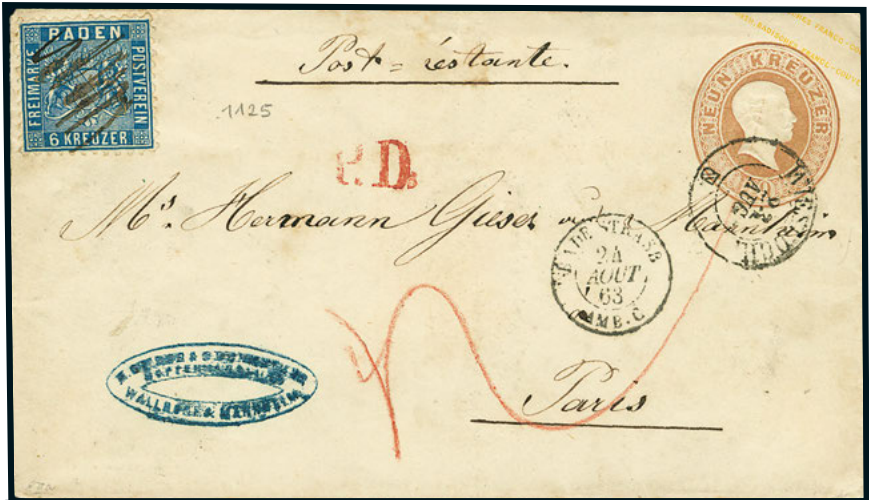 BADEN
FREIMARKE
POSTVEREIN
6 KREUZER
Post = restante.
NEUN KREUZER
1125
P.D.
Mr. Hermann Gieser Mannheim
BADE STRASB
24
AOUT
63
AMB. C
WIESLOCH
24
AUG
WALLDORF & MANNHEIM
Paris